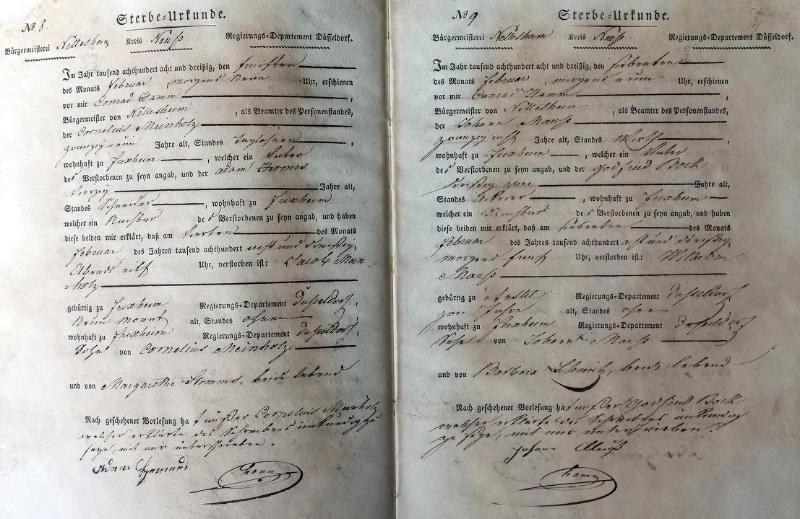 No 8
Sterbe-Urkunde.
Bürgermeisterei Nettesheim Kreis Neuß Regierungs-Departement Düsseldorf.
Im Jahr tausend achthundert acht und dreißig, den
des Monats Februar morgens neun Uhr, erschienen
vor mir Conrad Hamm
Bürgermeister von Nettesheim, als Beamter des Personenstandes,
der Cornelius Meinholz
zwanzig neun Jahre alt, Standes Taglöhner,
wohnhaft zu, welcher ein Vater
des Verstorbenen zu seyn angab, und der Adam Hermes
vierzig Jahre alt,
Standes Schneider, wohnhaft zu
welcher ein Nachbar des Verstorbenen zu seyn angab, und haben
diese beiden mir erklärt, daß am des Monats
Februar des Jahrs tausend achthundert acht und dreißig
Abends elf Uhr, verstorben ist: Jacob Mein-
holz
gebürtig zu Regierungs-Departement Düsseldorf,
neun Monat alt, Standes ohne
wohnhaft zu Regierungs-Departement Düsseldorf
Sohn von Cornelius Meinholz
und von Margaretha, beide lebend
Nach geschehener Vorlesung ha t außer Cornelius Meinholz
welcher erklärte des Schreibens unkundig zu
seyn, mit mir unterschrieben.
Adam Hermes
Hamm
No 9
Sterbe-Urkunde.
Bürgermeisterei Nettesheim Kreis Neuß Regierungs-Departement Düsseldorf.
Im Jahr tausend achthundert acht und dreißig, den siebenten
des Monats Februar morgens neun Uhr, erschienen
vor mir Conrad Hamm
Bürgermeister von Nettesheim, als Beamter des Personenstandes,
der Johann Mauß
zwanzig acht Jahre alt, Standes Wirth,
wohnhaft zu, welcher ein Vater
des Verstorbenen zu seyn angab, und der Godfried Bock
dreißig zwei Jahre alt,
Standes Ackerer, wohnhaft zu
welcher ein des Verstorbenen zu seyn angab, und haben
diese beiden mir erklärt, daß am siebenten des Monats
Februar des Jahrs tausend achthundert acht und dreißig
morgens fünf Uhr, verstorben ist: Wilhelm
Mauß
gebürtig zu Regierungs-Departement Düsseldorf
zwei Jahre alt, Standes ohne
wohnhaft zu Regierungs-Departement Düsseldorf
Sohn von Johann Mauß
und von Barbara, beide lebend
Nach geschehener Vorlesung ha t außer Godfried Bock
welcher erklärte des Schreibens unkundig
zu seyn, mit mir unterschrieben.
Johann Mauß
Hamm